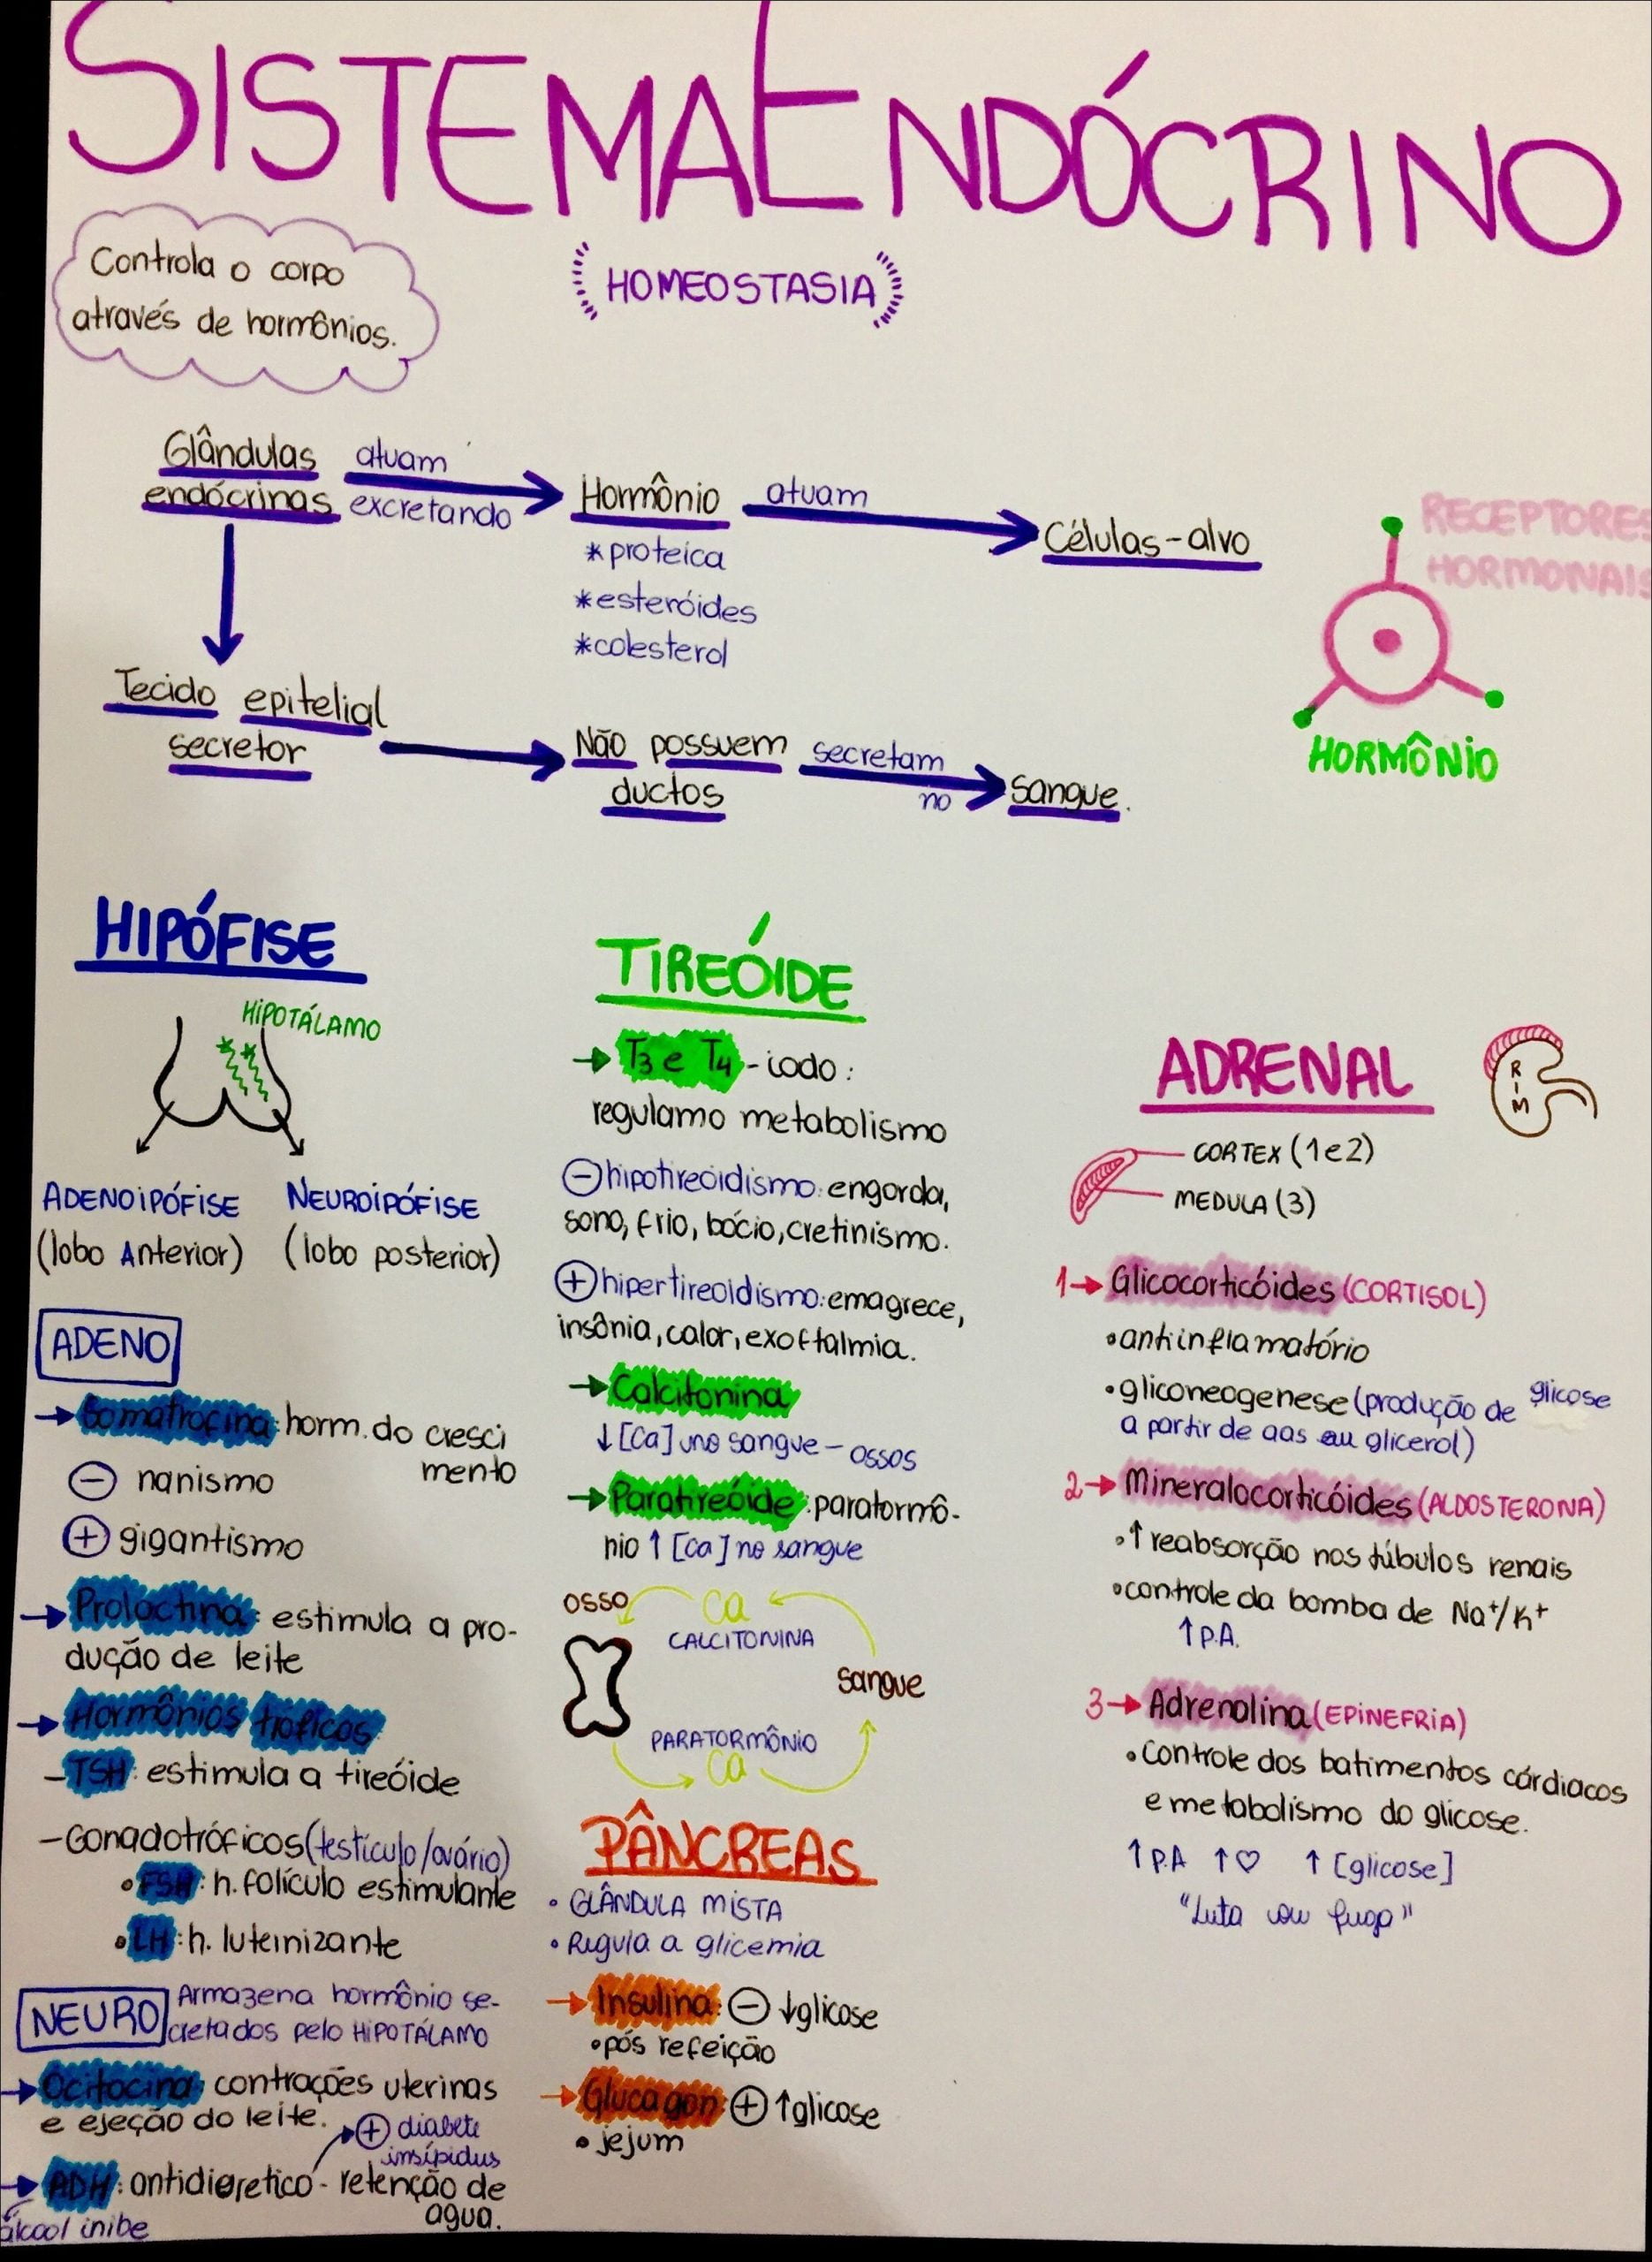 SISTEMA ENDÓCRINO
Controla o corpo
através de hormônios.
HOMEOSTASIA
Glândulas
endócrinas
atuam
excretando
Hormônio
*proteica
*esteróides
*colesterol
atuam
Células-alvo
RECEPTORES
HORMONAIS
HORMÔNIO
Tecido epitelial
secretor
Não possuem
ductos
secretam
no
sangue.
HIPÓFISE
HIPOTÁLAMO
ADENOIPÓFISE
(lobo Anterior)
NEUROIPÓFISE
(lobo posterior)
ADENO
→ Somatrofina: horm. do cresci
mento
⊖ nanismo
⊕ gigantismo
→ Prolactina: estimula a pro-
dução de leite
→ Hormônios tróficos:
-TSH: estimula a tireóide
-Gonadotróficos (testículo/ovário)
•FSH: h. folículo estimulante
•LH: h. luteinizante
NEURO
Armazena hormônio se-
cretados pelo HIPOTÁLAMO
→ Ocitocina: contrações uterinas
e ejeção do leite.
⊕ diabete
insípidus
→ ADH: antidiuretico - retenção de
agua.
álcool inibe
TIREÓIDE
→ T3 e T4 - iodo:
regulamo metabolismo
⊖ hipotireoidismo: engorda,
sono, frio, bócio, cretinismo.
⊕ hipertireoidismo: emagrece,
insônia, calor, exoftalmia.
→ Calcitonina
↓ [Ca] no sangue - ossos
→ Paratireóide: paratormô-
nio ↑ [Ca] no sangue
OSSO
Ca
CALCITONINA
sangue
PARATORMÔNIO
Ca
PÂNCREAS
• GLÂNDULA MISTA
• Regula a glicemia
→ Insulina: ⊖ ↓glicose
•pós refeição
→ Glucagon: ⊕ ↑glicose
• jejum
ADRENAL
RIM
CORTEX (1e2)
MEDULA (3)
1→ Glicocorticóides (CORTISOL)
•antiinflamatório
•gliconeogenese (produção de glicose
a partir de aas ou glicerol)
2→ Mineralocorticóides (ALDOSTERONA)
•↑ reabsorção nos túbulos renais
•controle da bomba de Na⁺/K⁺
↑P.A.
3→ Adrenalina (EPINEFRIA)
•controle dos batimentos cárdiacos
e metabolismo do glicose.
↑P.A ↑♡ ↑ [glicose]
"Luta ou fuga"